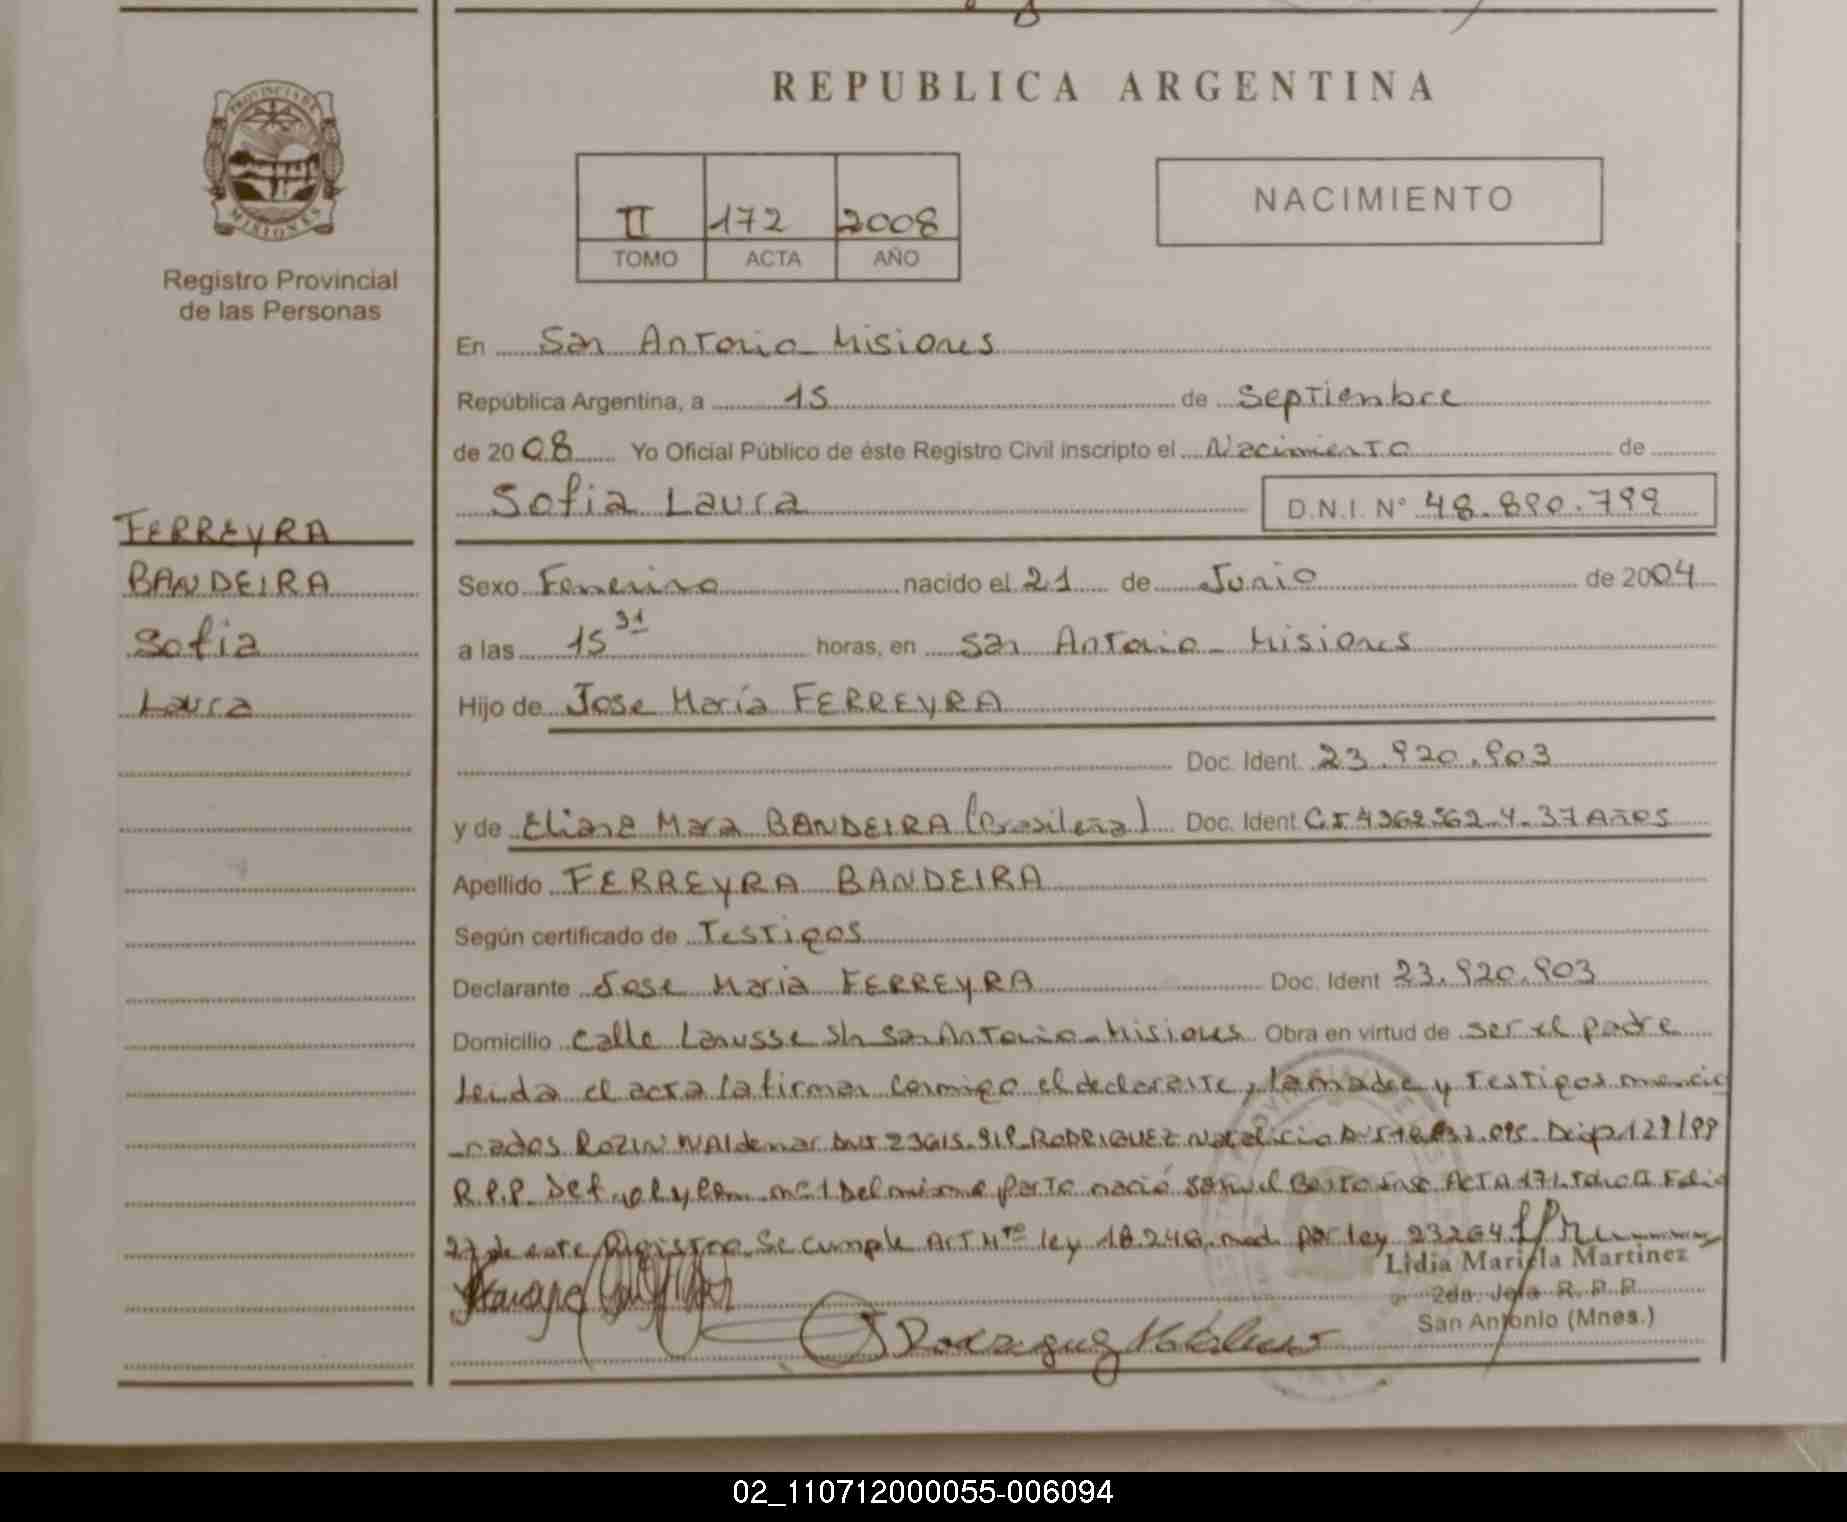 REPUBLICA ARGENTINA
PROVINCIA DE
MISIONES
Registro Provincial
de las Personas
II 172 2008
TOMO ACTA AÑO
NACIMIENTO
En San Antonio Misiones
República Argentina, a 15 de Septiembre
de 2008 Yo Oficial Público de éste Registro Civil inscripto el Nacimiento de
Sofia Laura D.N.I. N° 48.890.799
FERREYRA
BANDEIRA
Sofia
Laura
Sexo Femenino nacido el 21 de Junio de 2004
a las 15 31 horas, en San Antonio - Misiones
Hijo de Jose María FERREYRA
Doc. Ident. 23.920.903
y de Eliane Mara BANDEIRA (Brasileña) Doc. Ident C.I 4362562-4-37 Años
Apellido FERREYRA BANDEIRA
Según certificado de Testigos
Declarante Jose Maria FERREYRA Doc. Ident 23.920.903
Domicilio calle Lanusse S/n San Antonio - Misiones Obra en virtud de ser el padre
Leida el acta la firman conmigo el declarante, la madre y Testigos mencio
-nados ROZIN Waldemar RODRIGUEZ Natalicio Disp 129/99
R.P.P. Del mismo parto nació ACTA 171 Tomo II Folio
27 de este Registro. Se cumple ART ley 18.248 mod. por ley 23264
Lidia Mariela Martinez
2da. Jefa R. P. P.
San Antonio (Mnes.)
02_110712000055-006094